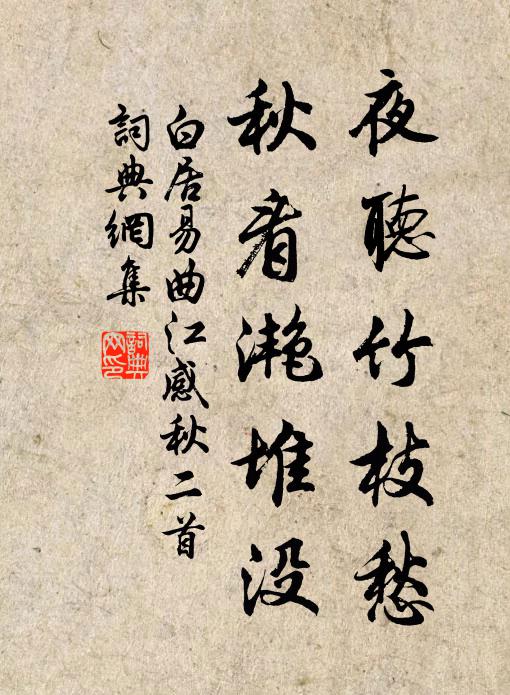 夜聽竹枝愁
秋看灧堆没
白居易曲江感秋二首
詞典網集
詞典网印